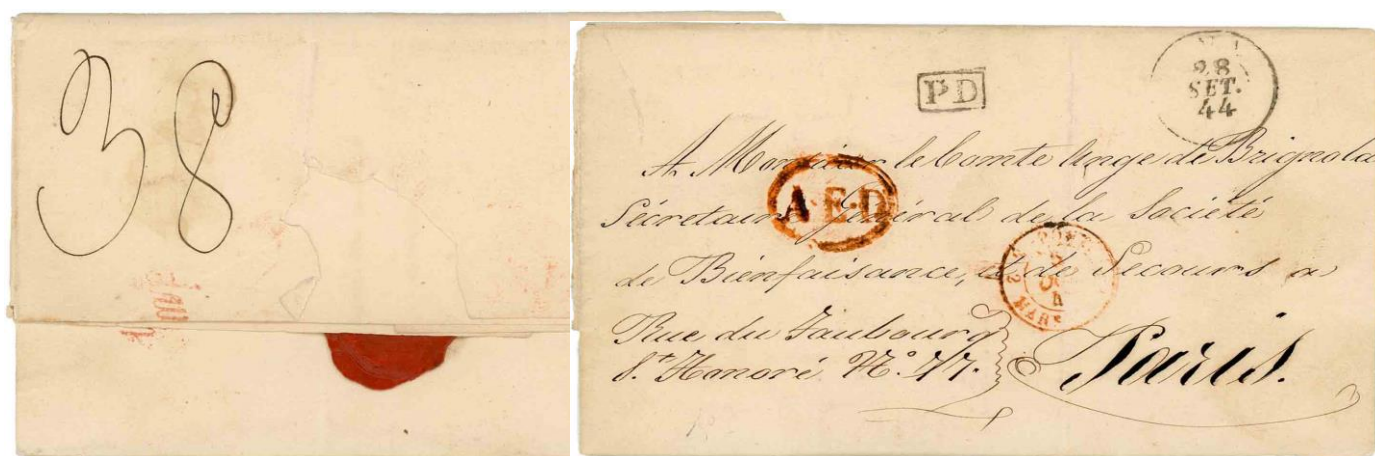 38
P.D
28
SET.
44
A Monsieur le Comte Ange de Brignola
A.E.D
Sécretaire Général de la Société
de Bienfaisance, et de Secours a
Rue du Faubourg
St. Honoré No. 77.
Paris.